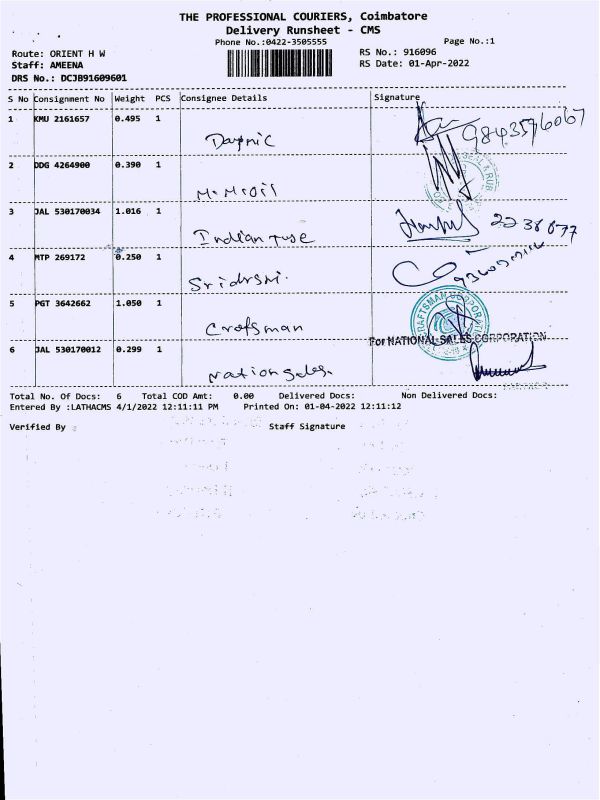 THE PROFESSIONAL COURIERS, Coimbatore
Delivery Runsheet - CMS
Phone No.:0422-3505555 Page No.:1
Route: ORIENT H W RS No.: 916096
Staff: AMEENA RS Date: 01-Apr-2022
DRS No.: DCJB91609601
S No Consignment No Weight PCS Consignee Details Signature
1 KMU 2161657 0.495 1
2 DDG 4264900 0.390 1
3 JAL 530170034 1.016 1
Indian
4 MTP 269172 0.250 1
5 PGT 3642662 1.050 1
Crofsman
CRAFTSMAN CORPORATION
For NATIONAL SALES CORPORATION
6 JAL 530170012 0.299 1
Total No. Of Docs: 6 Total COD Amt: 0.00 Delivered Docs: Non Delivered Docs:
Entered By :LATHACMS 4/1/2022 12:11:11 PM Printed On: 01-04-2022 12:11:12
Verified By Staff Signature